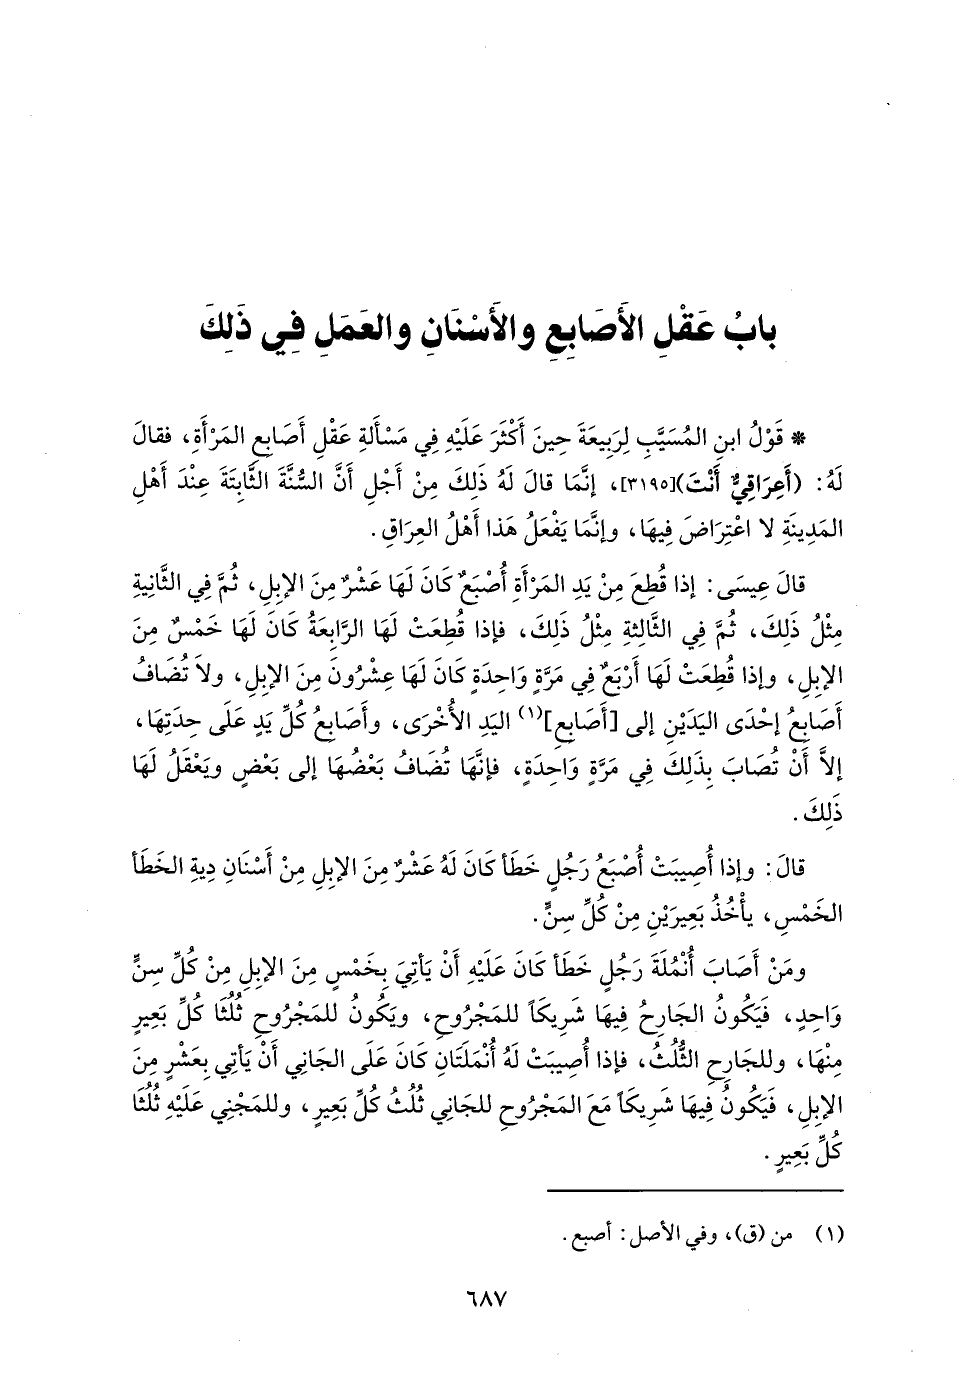 بابُ عَقْلِ الأَصَابِعِ والأَسْنَانِ والعَمَلِ فِي ذَلِكَ
* قَوْلُ ابنِ المُسَيَّبِ لِرَبِيعَةَ حِينَ أَكْثَرَ عَلَيْهِ فِي مَسْأَلةِ عَقْلِ أَصَابِعِ المَرْأَةِ، فقالَ
لَهُ: (أَعِرَاقِيٌّ أَنْتَ)[٣١٩٥]، إنَّمَا قالَ لَهُ ذَلِكَ مِنْ أَجْلِ أَنَّ السُّنَّةَ الثَّابتَةَ عِنْدَ أَهْلِ
المَدِينَةِ لا اعْتِرَاضَ فِيهَا، وإنَّمَا يَفْعَلُ هَذا أَهْلُ العِرَاقِ.
قالَ عِيسَى: إذا قُطِعَ مِنْ يَدِ المَرْأَةِ أُصْبَعٌ كَانَ لَهَا عَشْرٌ مِنَ الإبلِ، ثُمَّ فِي الثَّانِيةِ
مِثْلُ ذَلِكَ، ثُمَّ فِي الثَّالِثةِ مِثْلُ ذَلِكَ، فإذا قُطِعَتْ لَهَا الرَّابعَةُ كَانَ لَهَا خَمْسٌ مِنَ
الإبلِ، وإذا قُطِعَتْ لَهَا أَرْبَعٌ فِي مَرَّةٍ وَاحِدَةٍ كَانَ لَهَا عِشْرُونَ مِنَ الإبلِ، ولاَ تُضَافُ
أَصَابعُ إحْدَى اليَدَيْنِ إلى [أَصَابعِ](١) اليَدِ الأُخْرَى، وأَصَابعُ كُلِّ يَدٍ عَلَى حِدَتِهَا،
إلاَّ أَنْ تُصَابَ بِذَلِكَ فِي مَرَّةٍ وَاحِدَةٍ، فإنَّهَا تُضَافُ بَعْضُهَا إلى بَعْضٍ ويَعْقَلُ لَهَا
ذَلِكَ.
قالَ: وإذا أُصِيبَتْ أُصْبَعُ رَجُلٍ خَطَأً كَانَ لَهُ عَشْرٌ مِنَ الإبِلِ مِنْ أَسْنَانِ دِيةِ الخَطَأ
الخَمْسِ، يأْخُذُ بَعِيرَيْنِ مِنْ كُلِّ سِنٍّ.
ومَنْ أَصَابَ أُنْمُلَةَ رَجُلٍ خَطَأً كَانَ عَلَيْهِ أَنْ يَأتِيَ بِخَمْسٍ مِنَ الإبلِ مِنْ كُلِّ سِنٍّ
وَاحِدٍ، فَيَكُونُ الجَارِحُ فِيهَا شَرِيكَاً للمَجْرُوحِ، ويَكُونُ للمَجْرُوحِ ثُلُثَا كُلِّ بَعِيرٍ
مِنْهَا، وللجَارِحِ الثُّلُثُ، فإذا أُصِيبَتْ لَهُ أُنْمُلَتَانِ كَانَ عَلَى الجَانِي أَنْ يَأتِي بِعَشْرٍ مِنَ
الإبلِ، فَيَكُونُ فِيهَا شَرِيكَاً مَعَ المَجْرُوحِ للجَانِي ثُلُثُ كُلِّ بَعِيرٍ، وللمَجْنِي عَلَيْهِ ثُلُثَا
كُلِّ بَعِيرٍ.
(١) من (ق)، وفي الأصل: أصبع.
٦٨٧